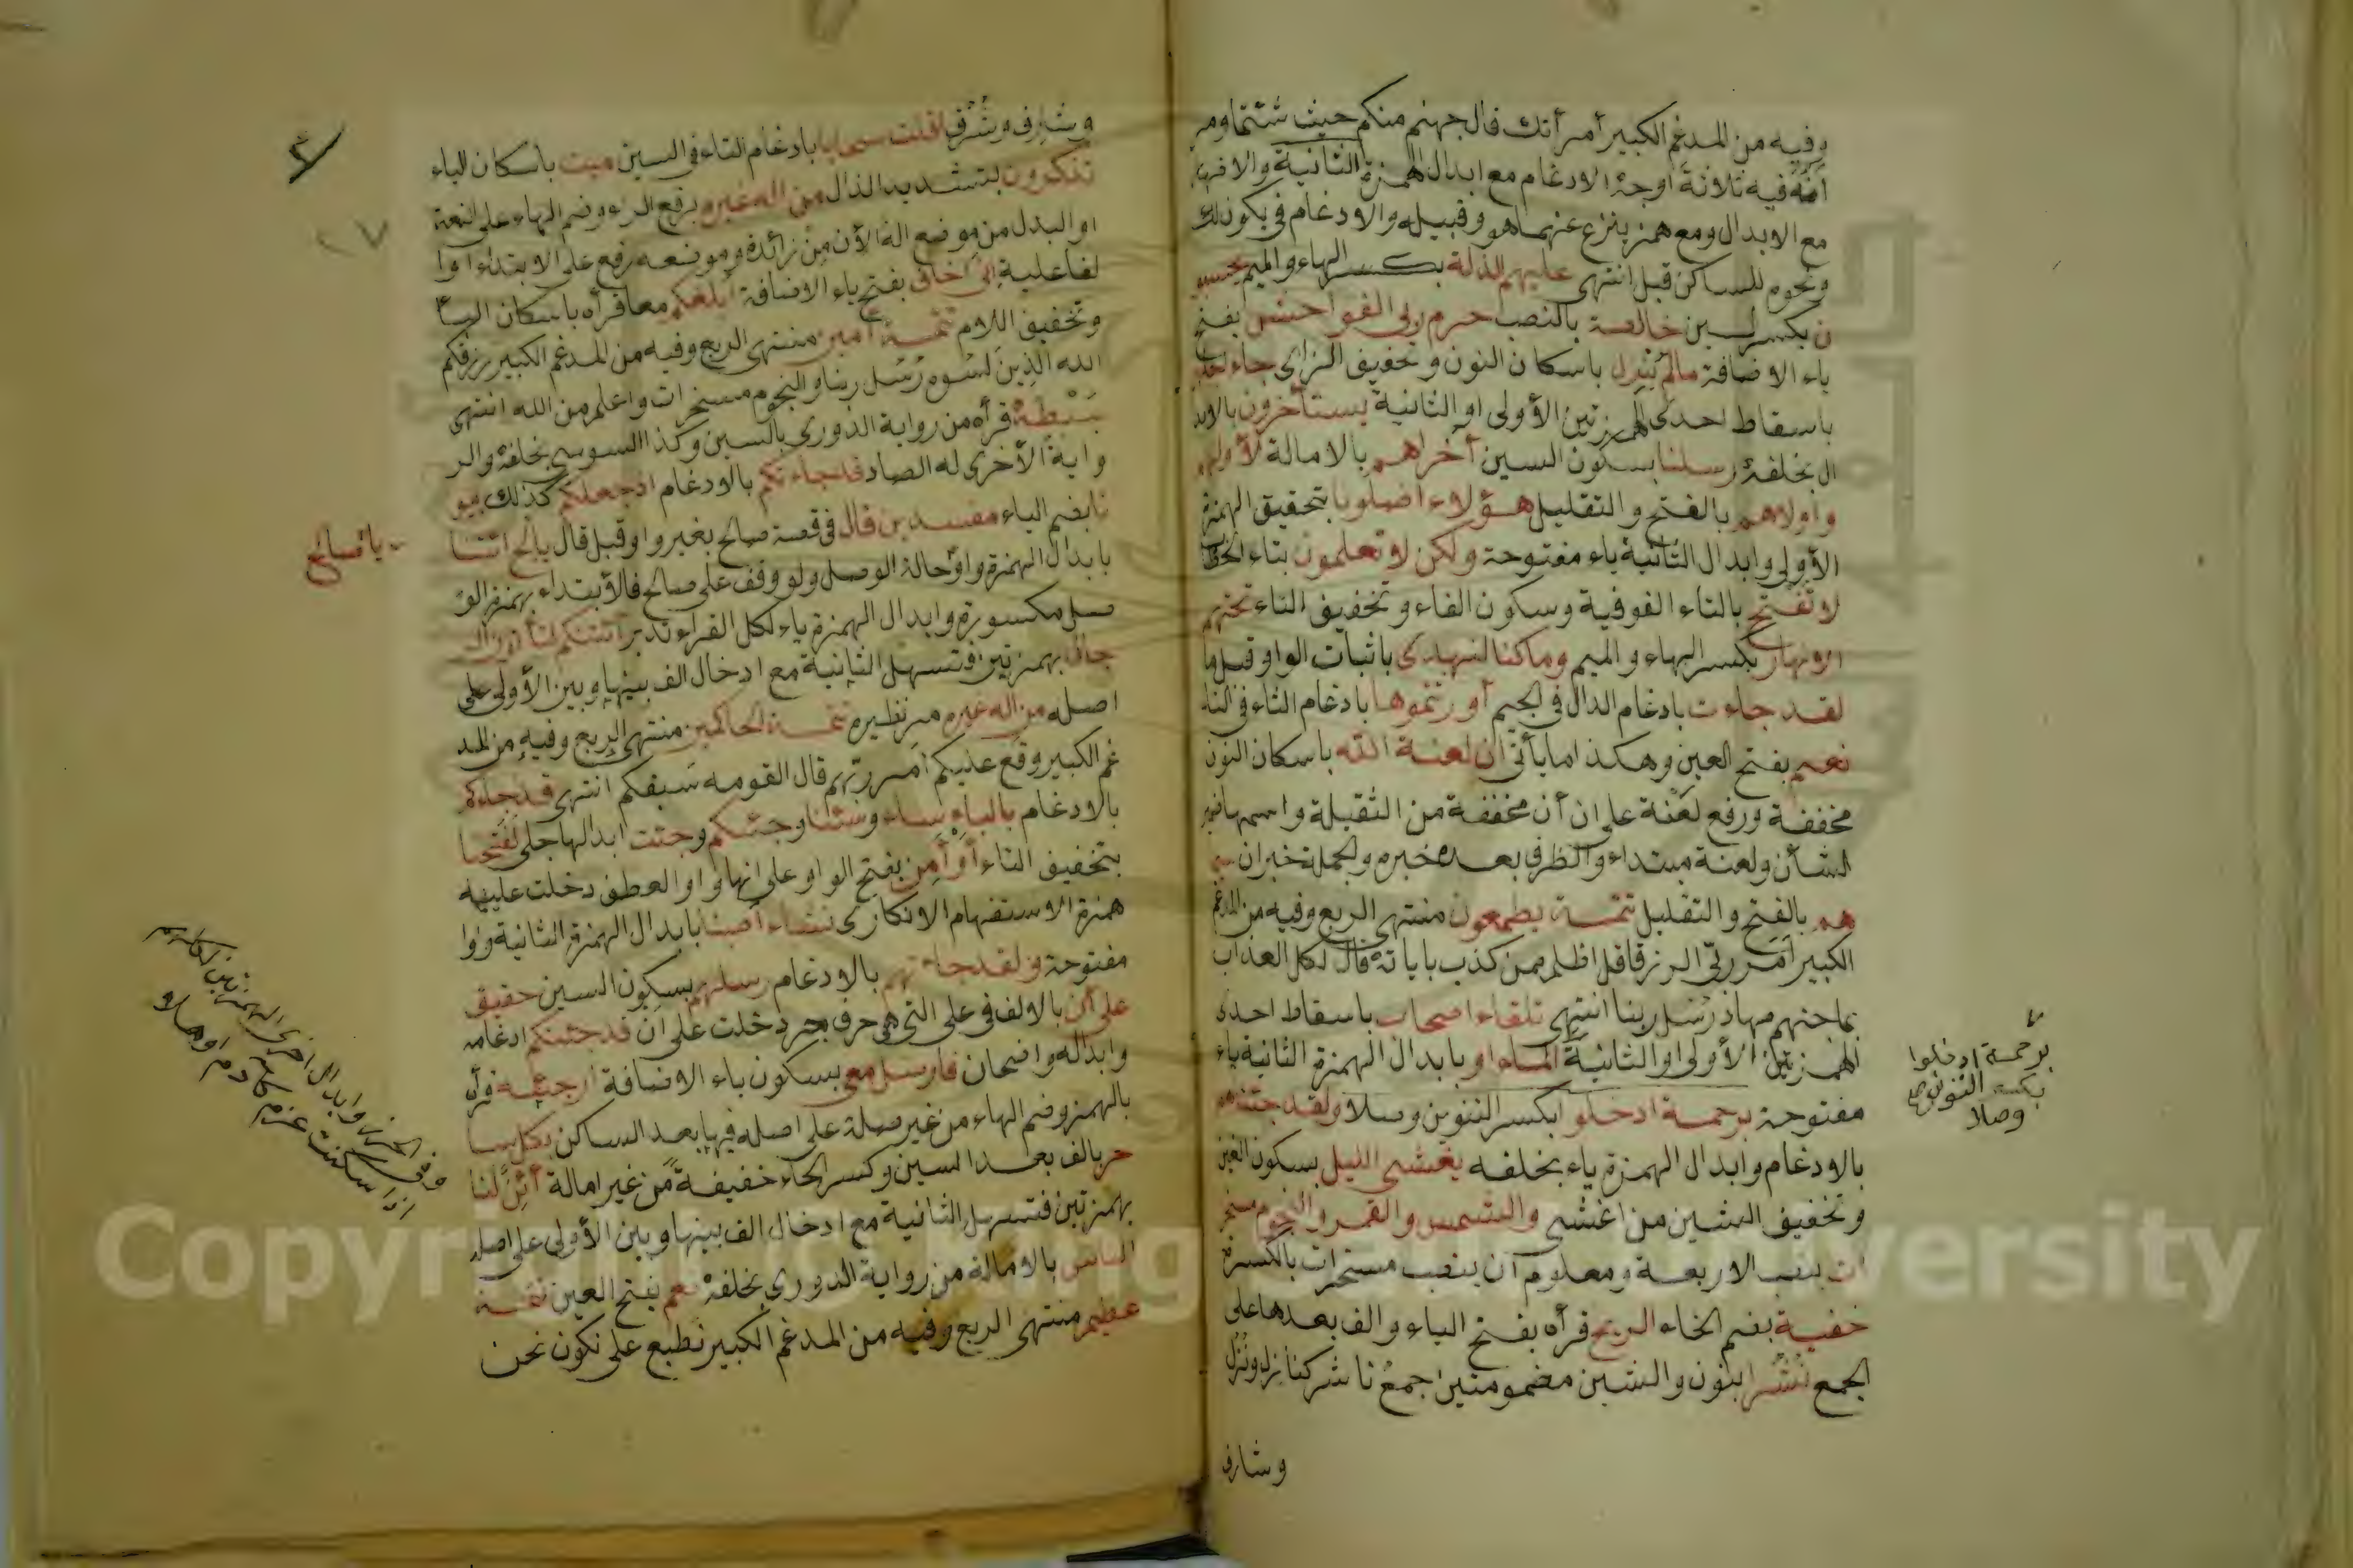 وفيه من المدغم الكبير أمر أتك قال جهنم منكم حيث شئتما ومر
أنه فيه ثلاثة أوجه الادغام مع ابدال الهمزة الثانية والاظهار
مع الابدال ومع همز ينزع عنهما هو وقبيله والادغام في يكون لك
ونحوه للساكن قبل انتهى عليهم الذلة بكسر الهاء والميم يحسبو
ن بكسر السين خالصة بالنصب حرم ربي الفواحش بفتح
ياء الاضافة مالم ينزل باسكان النون وتخفيف الزاي جاء اجلهم
باسقاط احدى الهمزتين الأولى او الثانية يستأخرون بالابد
ال بخلفه رسلنا بسكون السين أخراهم بالامالة لأولهم
وأولاهم بالفتح والتقليل هؤلاء اضلونا بتحقيق الهمزة
الأولى وابدال الثانية ياء مفتوحة ولكن لا تعلمون بتاء الخطا
لا تفتح بالتاء الفوقية وسكون الفاء وتخفيف التاء تحتهم
الانهار بكسر الهاء والميم وماكنا لنهتدى باثبات الواو قبل ما
لقد جاءت بادغام الدال في الجيم أورثتموها بادغام الثاء في التا
نعم بفتح العين وهكذا ما يأتي ان لعنة الله باسكان النون
مخففة ورفع لعنة على ان أن مخففة من الثقيلة واسمها ضمير
الشأن ولعنة مبتداء والظرف بعده خبره والجملة خبر ان سيما
هم بالفتح والتقليل تتمة يطمعون منتهى الربع وفيه من المدغم
الكبير أمر ربي الرزق قل اظلم ممن كذب باياته قال لكل العذاب
بما جهنم مهاد رسل ربنا انتهى تلقاء اصحاب باسقاط احدى
الهمزتين الأولى او الثانية الماء او بابدال الهمزة الثانية ياء
مفتوحة برحمة ادخلوا بكسر التنوين وصلا ولقد جئنهم
بالادغام وابدال الهمزة ياء بخلفه يغشى الليل بسكون الغين
وتخفيف الشين من اغشى والشمس والقمر والنجوم مسخر
ات بنصب الاربعة ومعلوم أن ينصب مسخرات بالكسرة
خفية بضم الخاء الريح قرأه بفتح الياء والف بعدها على
الجمع نشرا بنون والشين مضمومتين جمع ناشر كنازل ونزل
وشارف
برحمة ادخلوا
بكسر التنوين
وصلا
وشارف وشرف اقلت سحابا بادغام التاء في السين ميت باسكان الياء
تذكرون بتشديد الذال من اله غيره برفع الراء وضم الهاء على النعت
او البدل من موضع اله الأن من زائدة وموضعه رفع على الابتداء او ا
لفاعلية انى اخاف بفتح ياء الاضافة ابلغكم معا قرأه باسكان البا
وتخفيف اللام تتمة أمين منتهى الربع وفيه من المدغم الكبير رزقكم
الله الذين نسوه رسل ربنا والنجوم مسخرات واعلم من الله انتهى
بسطة قرأه من رواية الدوري بالسين وكذا السوسي بخلفه والر
واية الأخرى له الصاد قد جاءتكم بالادغام اذ جعلكم كذلك بيو
تا بضم الباء مفسدين قال في قصة صالح بغير واو قبل قال يالح ائتنا
بابدال الهمزة واو حالة الوصل ولو وقف على صالح فالأبتداء بهمز الو
صل مكسورة وابدال الهمزة ياء لكل القراء تدبر ائنكم لتأتون الر
جال بهمزتين فتسهل الثانية مع ادخال الف بينها وبين الأولى على
اصله من اله غيره مر نظيره تتمة الحاكمين منتهى الربع وفيه من المد
غم الكبير وقع عليكم أمر ربهم قال لقومه سبقكم انتهى قد جاءكم
بالادغام بالباء ساء وشئنا وجئتكم وجئت ابدالها جلى لفتحنا
بتخفيف التاء أو أمن بفتح الواو على انها واو العطف دخلت عليه
همزة الاستفهام الانكاري نشاء أصبنا بابدال الهمزة الثانية واوا
مفتوحة ولقد جاءتهم بالادغام رسلهم بسكون السين حقيق
على أن بالالف في على التي هي حرف جر دخلت على ان قد جئتكم ادغامه
وابداله واضحان فارسل معي بسكون ياء الاضافة ارجئه قرأه
بالهمز وضم الهاء من غير صلة على اصله فيها بعد الساكن بكل سا
حر بالف بعد السين وكسر الحاء خفيفة من غير امالة أئن لنا
بهمزتين فتسهل الثانية مع ادخال الف بينها وبين الأولى على اصله
الناس بالامالة من رواية الدوري بخلفه نعم بفتح العين تتمة
عظيم منتهى الربع وفيه من المدغم الكبير نطبع على نكون نحن
يا صالح
Copyright King Saud University